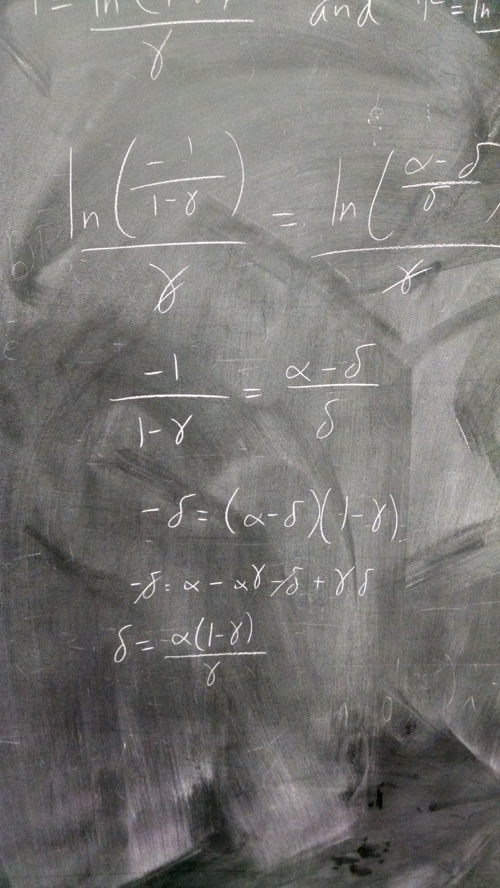 and
ln(-1/(1-γ))/γ = ln((α-δ)/δ)/γ
-1/(1-γ) = (α-δ)/δ
-δ = (α-δ)(1-γ)
-δ = α - αγ - δ + γδ
δ = α(1-γ)/γ